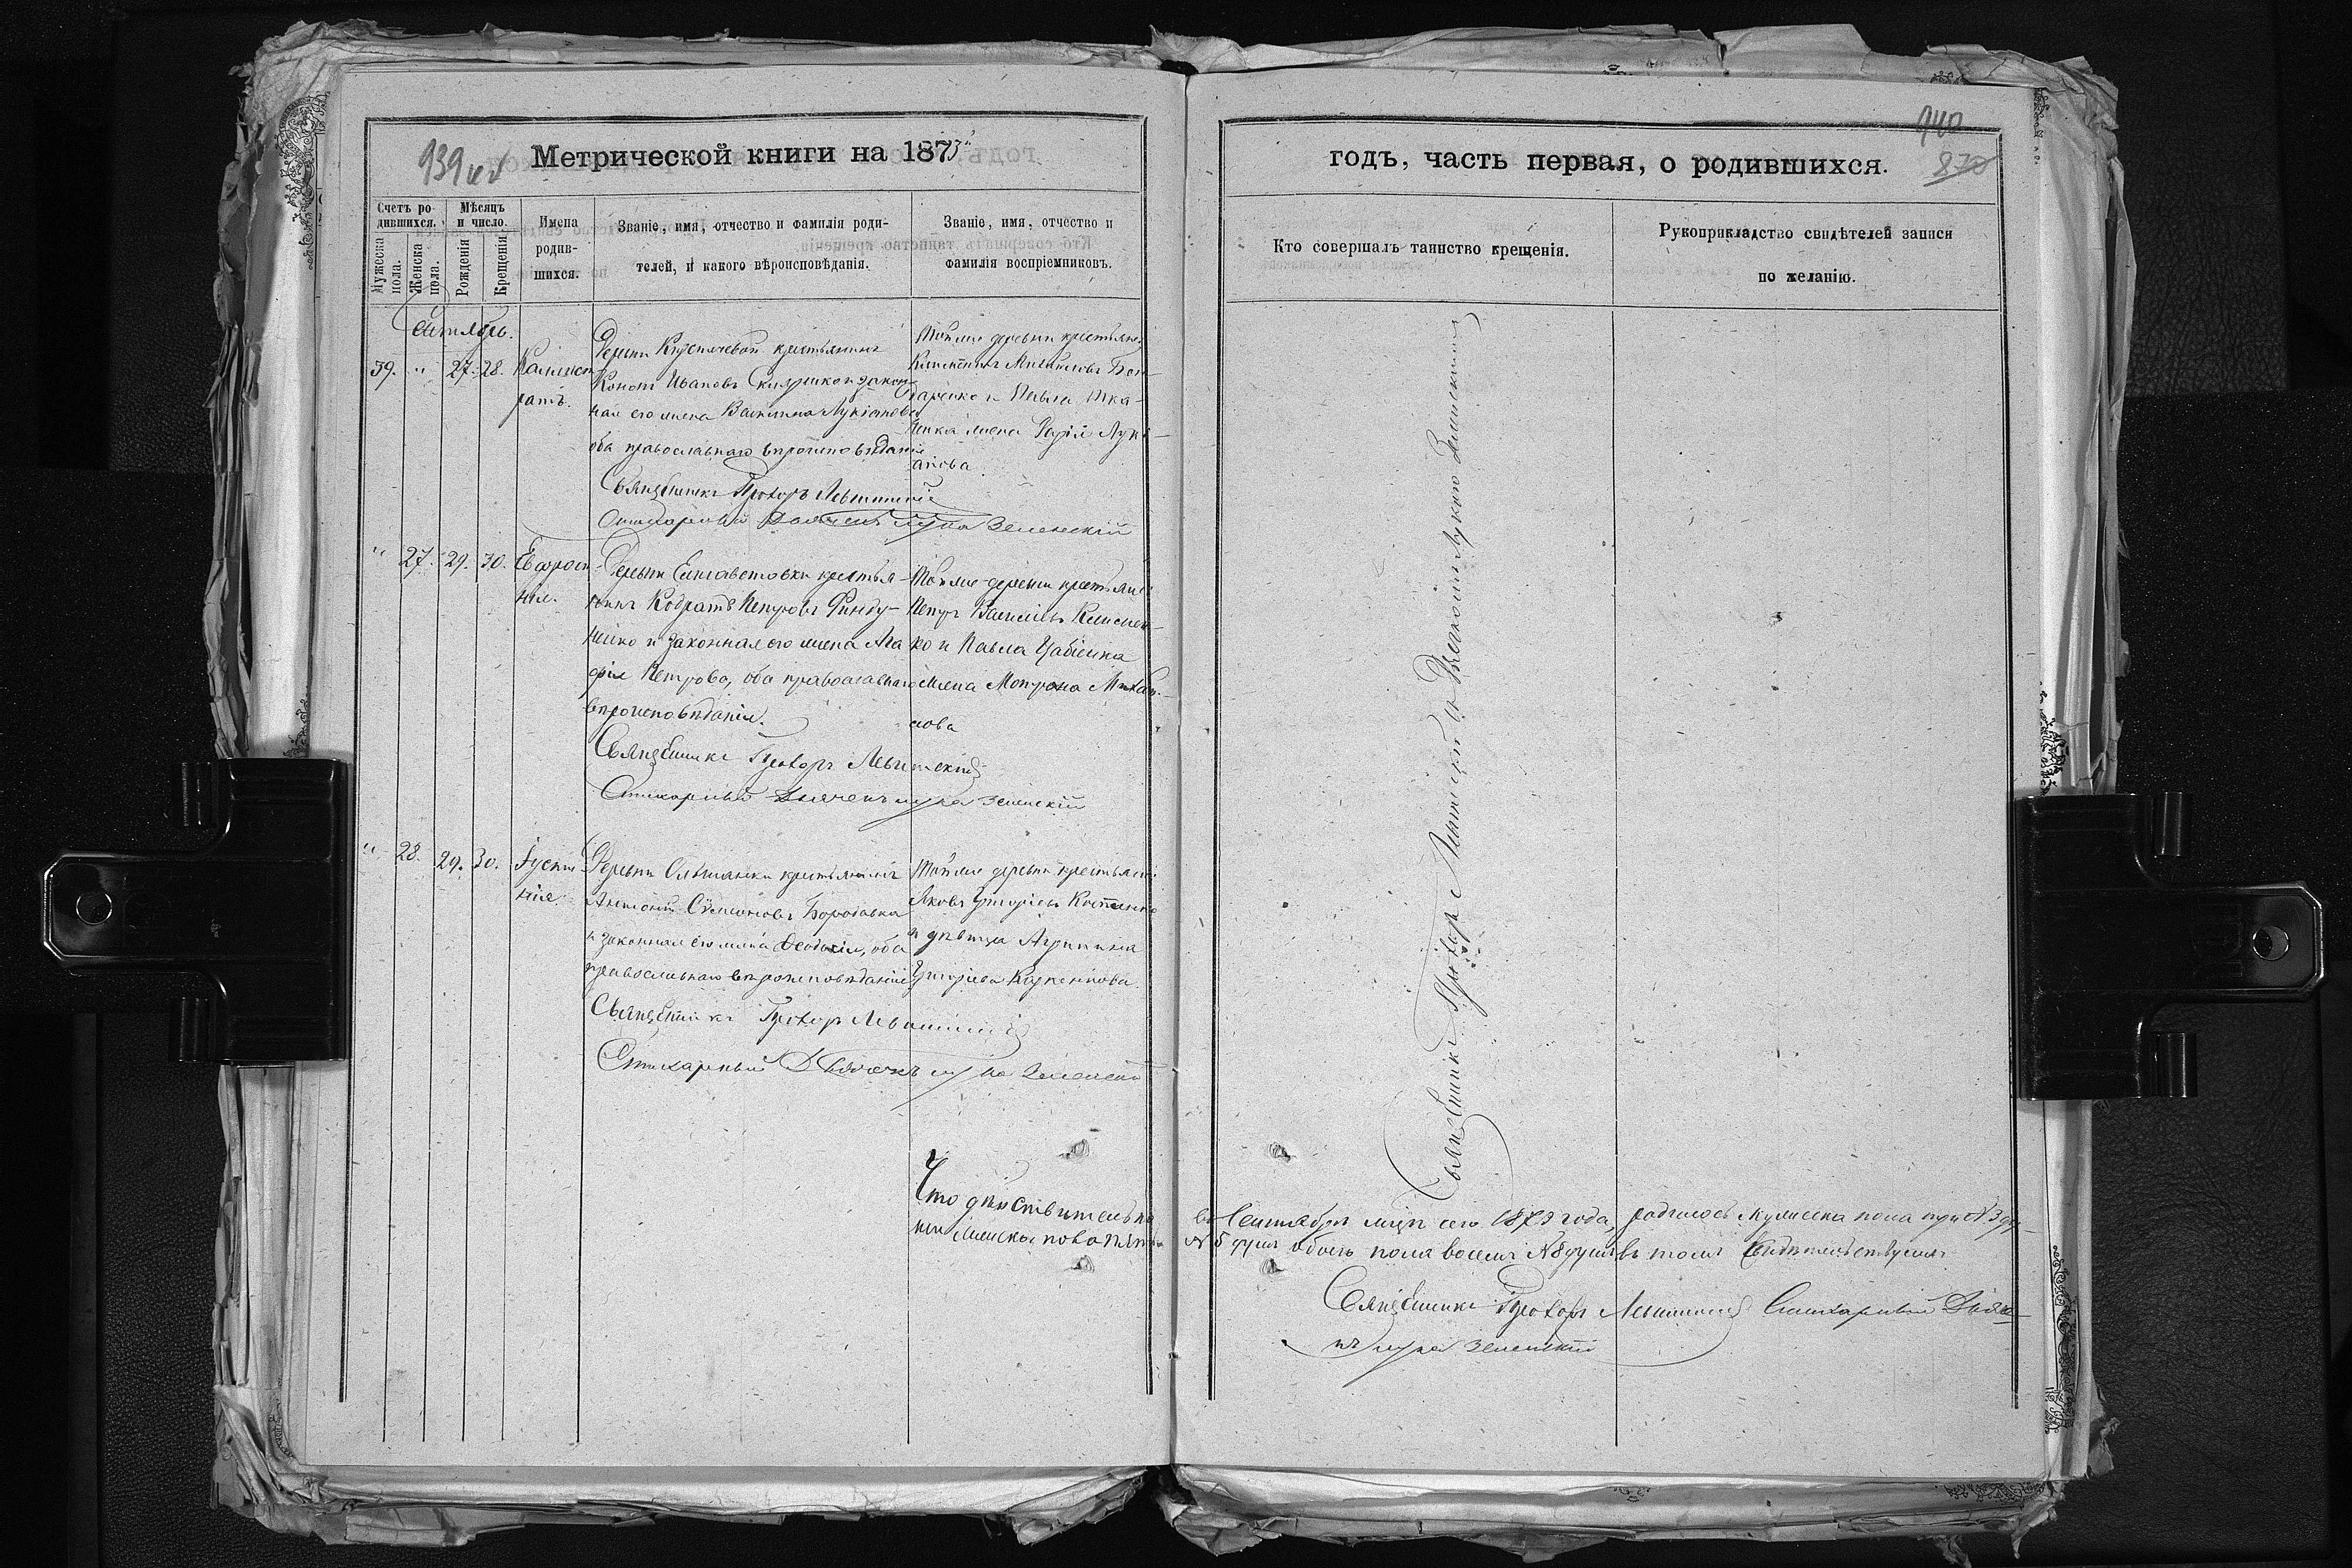 939 об
Метрической книги на 1873
Счетъ ро-
дившихся.
Мужеска пола.
Женска пола.
Мѣсяцъ
и число.
Рожденія
Крещенія.
Имена
родив-
шихся.
Званіе, имя, отчество и фамилія роди-
телей, и какого вѣроисповѣданія.
Званіе, имя, отчество и
фамилія воспріемниковъ.
39. " 27. 28.
Калист-
ратъ.
Деревни крестьянинъ
Кононъ Ивановъ и закон-
ная его жена Василиса Лукіанова
оба православнаго вѣроисповѣданія
Священникъ Прохоръ Левитскій
Стихарный Дьячекъ Лука Зеленскій
Той же деревни крестьян.
Константинъ Бон-
даренко и Павла Тка-
ченка жена Дарія Луки-
анова
" 27. 29. 30.
Евфроси-
нія.
Деревни Елисаветовки крестья-
нинъ Кодратъ Петровъ
и законная его жена Ага-
фія Петрова, оба православнаго
вѣроисповѣданія.
Священникъ Прохоръ Левитскій
Стихарный Дьячекъ Лука Зеленскій
Той же деревни крестьян.
Петръ Василіевъ
ко и Павла
жена Матрона Михаи-
лова
" 28. 29. 30.
Іусти-
нія.
Деревни Ольшанки крестьянинъ
Антоній Сумеоновъ Бородавка
и законная его жена Феодосія, оба
православнаго вѣроисповѣданія
Священникъ Прохоръ Левитскій
Стихарный Дьячекъ Лука Зеленскій
Той же деревни крестьян.
Яковъ Григоріевъ Костенко
и дѣвица Агрипина
Григорьева Карпенкова.
Что дѣйствительно
женска пола пять
940
870
годъ, часть первая, о родившихся.
Кто совершалъ таинство крещенія.
Рукоприкладство свидѣтелей записи
по желанію.
Священникъ Прохоръ Левитскій съ Дьячкомъ Лукою Зеленскимъ
въ Сентябрѣ мцѣ сего 1873 года, родилось мужеска пола три № 3
№ 5 душъ обоего пола восемь № 8 душъ въ томъ свидѣтельствуемъ
Священникъ Прохоръ Левитскій Стихарный Дьяче-
къ Лука Зеленскій